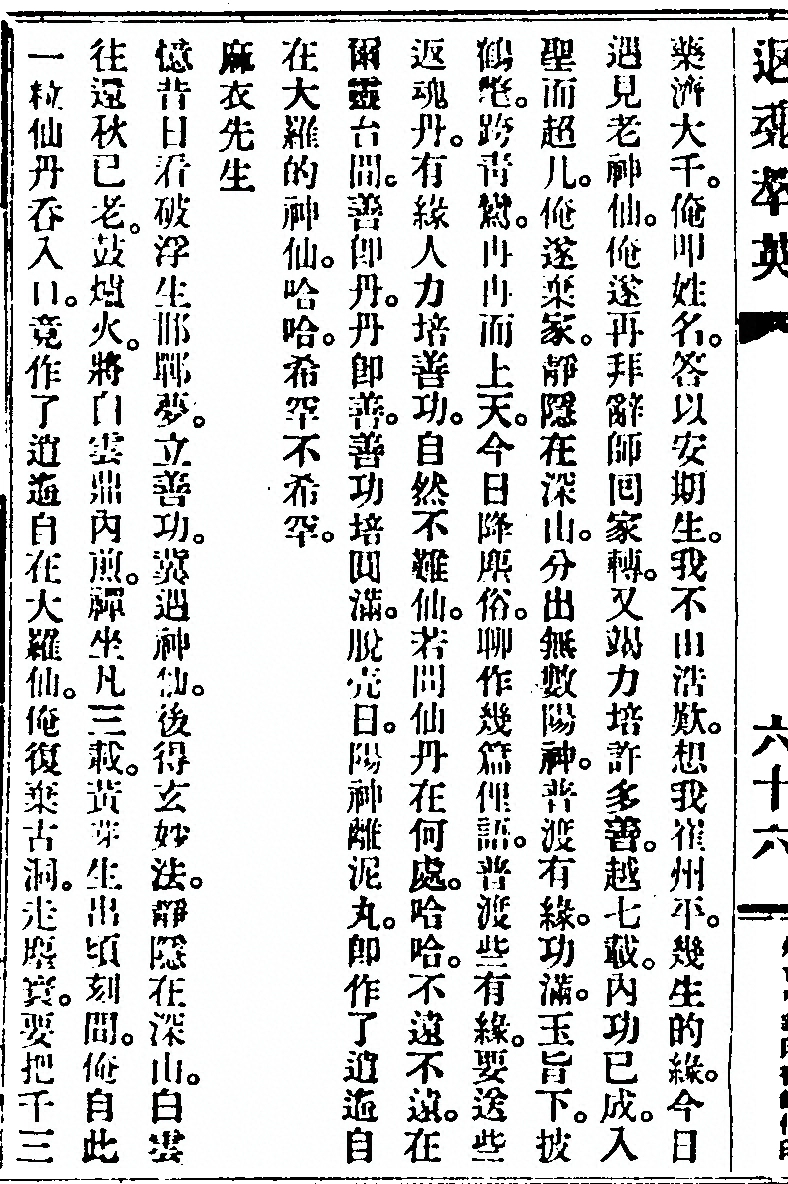 返魂萃英
六十六
藥濟大千。俺叩姓名。答以安期生。我不由浩歎。想我崔州平。幾生的緣。今日
遇見老神仙。俺遂再拜辭師回家轉。又竭力培許多善。越七載。內功已成。入
聖而超凡。俺遂棄家。靜隱在深山。分出無數陽神。普渡有緣。功滿。玉旨下。披
鶴氅。跨青鸞。冉冉而上天。今日降塵俗。聊作幾篇俚語。普渡些有緣。要送些
返魂丹。有緣人力培善功。自然不難仙。若問仙丹在何處。哈哈。不遠不遠。在
爾靈台間。善卽丹。丹卽善。善功培圓滿。脫壳日。陽神離泥丸。卽作了逍遙自
在大羅的神仙。哈哈。希罕不希罕。
麻衣先生
憶昔日看破浮生邯鄲夢。立善功。冀遇神仙。後得玄妙法。靜隱在深山。白雲
往還秋已老。鼓爐火。將白雲鼎內煎。禪坐凡三載。黃芽生出頃刻間。俺自此
一粒仙丹吞入口。竟作了逍遙自在大羅仙。俺復棄古洞。走塵寰。要把千三